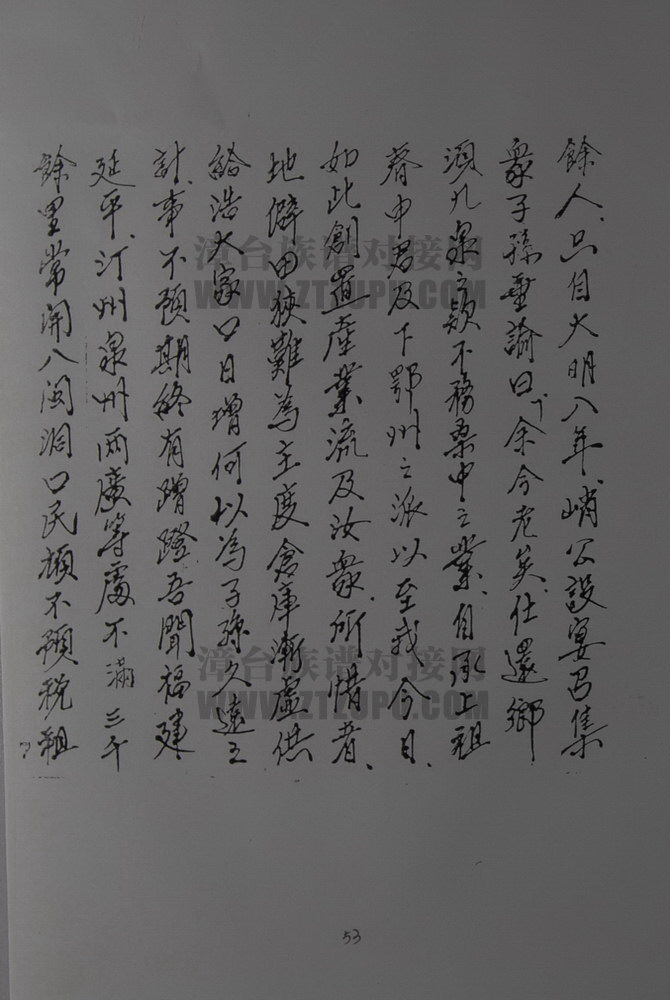 餘人、只自大明八年、峭公設宴召集
衆子孫垂諭曰「余今老矣、仕還鄉
須九泉之欵不務桑中之業、自承上祖
春申君及下鄂州之派以至我、今日、
如此創置產業流及汝衆、所惜者、
地僻田狹難為主度倉庫漸虛供
給浩大家口日增何以為子孫久遠之
計、事不預期終有蹭蹬吾聞福建
延平、汀州泉州兩廣等處不滿三千
餘里常開八閩洞口民頑不預稅租
53
漳台族谱对接网
WWW.ZTZUPU.COM
漳台族谱对接网
WWW.ZTZUPU.COM